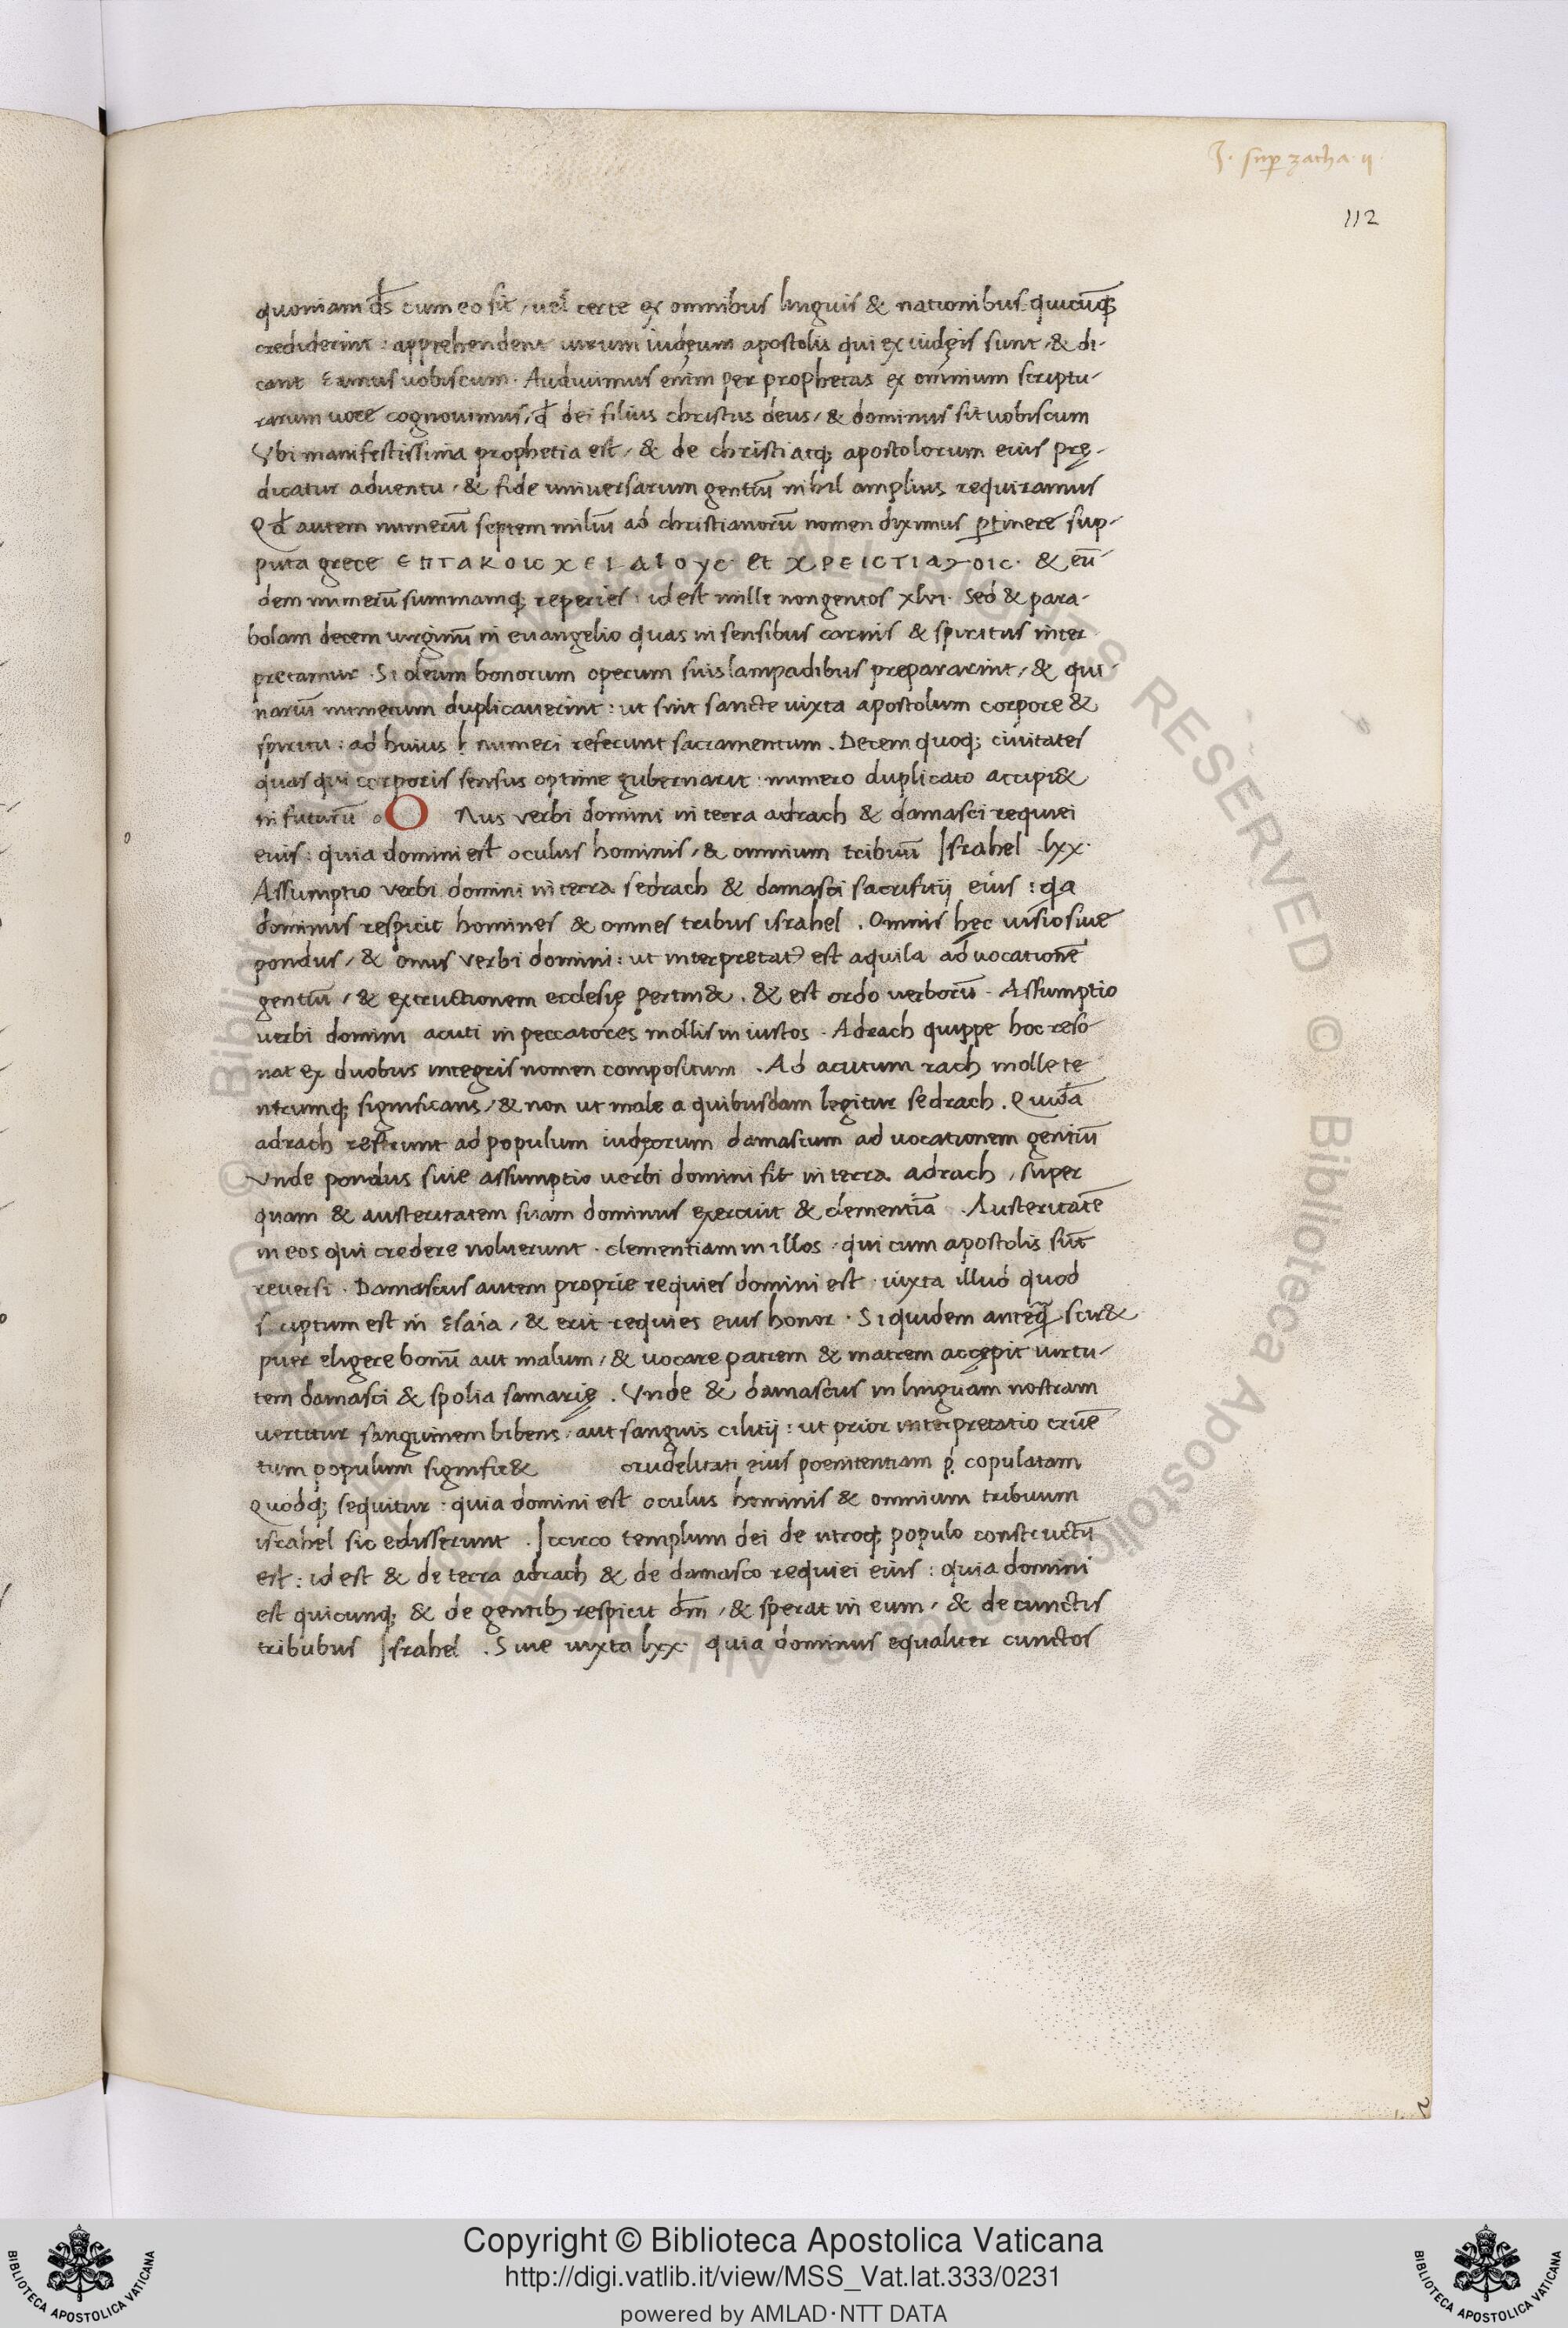 J. sup zacha. ij
112
quoniam d̄s cum eo sit / uel certe ex omnibus linguis & nationibus quicūq;
crediderint : apprehendent uirum iudęum apostolis qui ex iudęis sunt / & di-
cant Eamus uobiscum . Audiuimus enim per prophetas ex omnium scriptu-
rarum uoce cognouimus / qd̄ dei filius christus deus / & dominus sit uobiscum
Vbi manifestissima prophetia est / & de christi atq; apostolorum eius prę-
dicatur aduentu / & fide uniuersarum gentiū nihil amplius requiramus
Qd̄ autem numerū septem miliū ad christianorū nomen diximus ꝑtinere sup-
puta grece ЄΠΤΑΚΟΙС ΧЄΙΛΑΙΟΥС et ΧΡЄΙСΤΙΑΝΟΙС . & eū-
dem numerū summamq; reperies : id est mille nongentos xlvi . Sed & para-
bolam decem uirginū in euangelio quas in sensibus carnis & spiritus inter
pretamur . Si oleum bonorum operum suis lampadibus prepararint / & qui-
nariū numerum duplicauerint : ut sint sancte iuxta apostolum corpore &
spiritu : ad huius numeri referunt sacramentum . Decem quoq; ciuitates
quas qui corporis sensus optime gubernarit : numero duplicato accipi&
in futurū o O Nus verbi domini in terra adrach & damasci requiei
eius : quia domini est oculus hominis / & omnium tribuū Israhel . lxx .
Assumptio verbi domini in terra sedrach & damasci sacrifitij eius : qa
dominus respicit homines & omnes tribus israhel . Omnis hęc uisio siue
pondus / & onus verbi domini : ut interpretat᷒ est aquila ad uocationē
gentiū / & extructionem ecclesię pertin& . & est ordo verborū . Assumptio
verbi domini acuti in peccatores mollis in iustos . Adrach quippe hoc reso-
nat ex duobus integris nomen compositum . Ad acutum rach molle te-
ntrumq; significans / & non ut male a quibusdam legitur sedrach . Quidā
adrach referunt ad populum iudęorum damascum ad uocationem gentiū
Vnde pondus siue assumptio uerbi domini fit in terra adrach / super
quam & austeritatem suam dominus exercuit & clementiā . Austeritatē
in eos qui credere noluerunt . clementiam in illos . qui cum apostolis sūt
reuersi . Damascus autem proprie requies domini est . iuxta illud quod
scriptum est in Esaia / & erit requies eius honor . Si quidem anteq̄ scir&
puer eligere bonū aut malum / & uocare patrem & matrem accępit uirtu-
tem damasci & spolia samarię . Vnde & damascus in linguam nostram
uertitur sanguinem bibens / aut sanguis cilitij : ut prior interpretatio cruē
tum populum signific& crudelitati eius poenitentiam copulatam
Quodq; sequitur : quia domini est oculus hominis & omnium tribuum
israhel sic edisserunt . Iccirco templum dei de utroq; populo constructū
est : id est & de terra adrach & de damasco requiei eius : quia domini
est quicunq; & de gentib; respicit dm̄ / & sperat in eum / & de cunctis
tribubus Israhel . Siue iuxta lxx . quia dominus equaliter cunctos
Copyright © Biblioteca Apostolica Vaticana
http://digi.vatlib.it/view/MSS_Vat.lat.333/0231
powered by AMLAD·NTT DATA